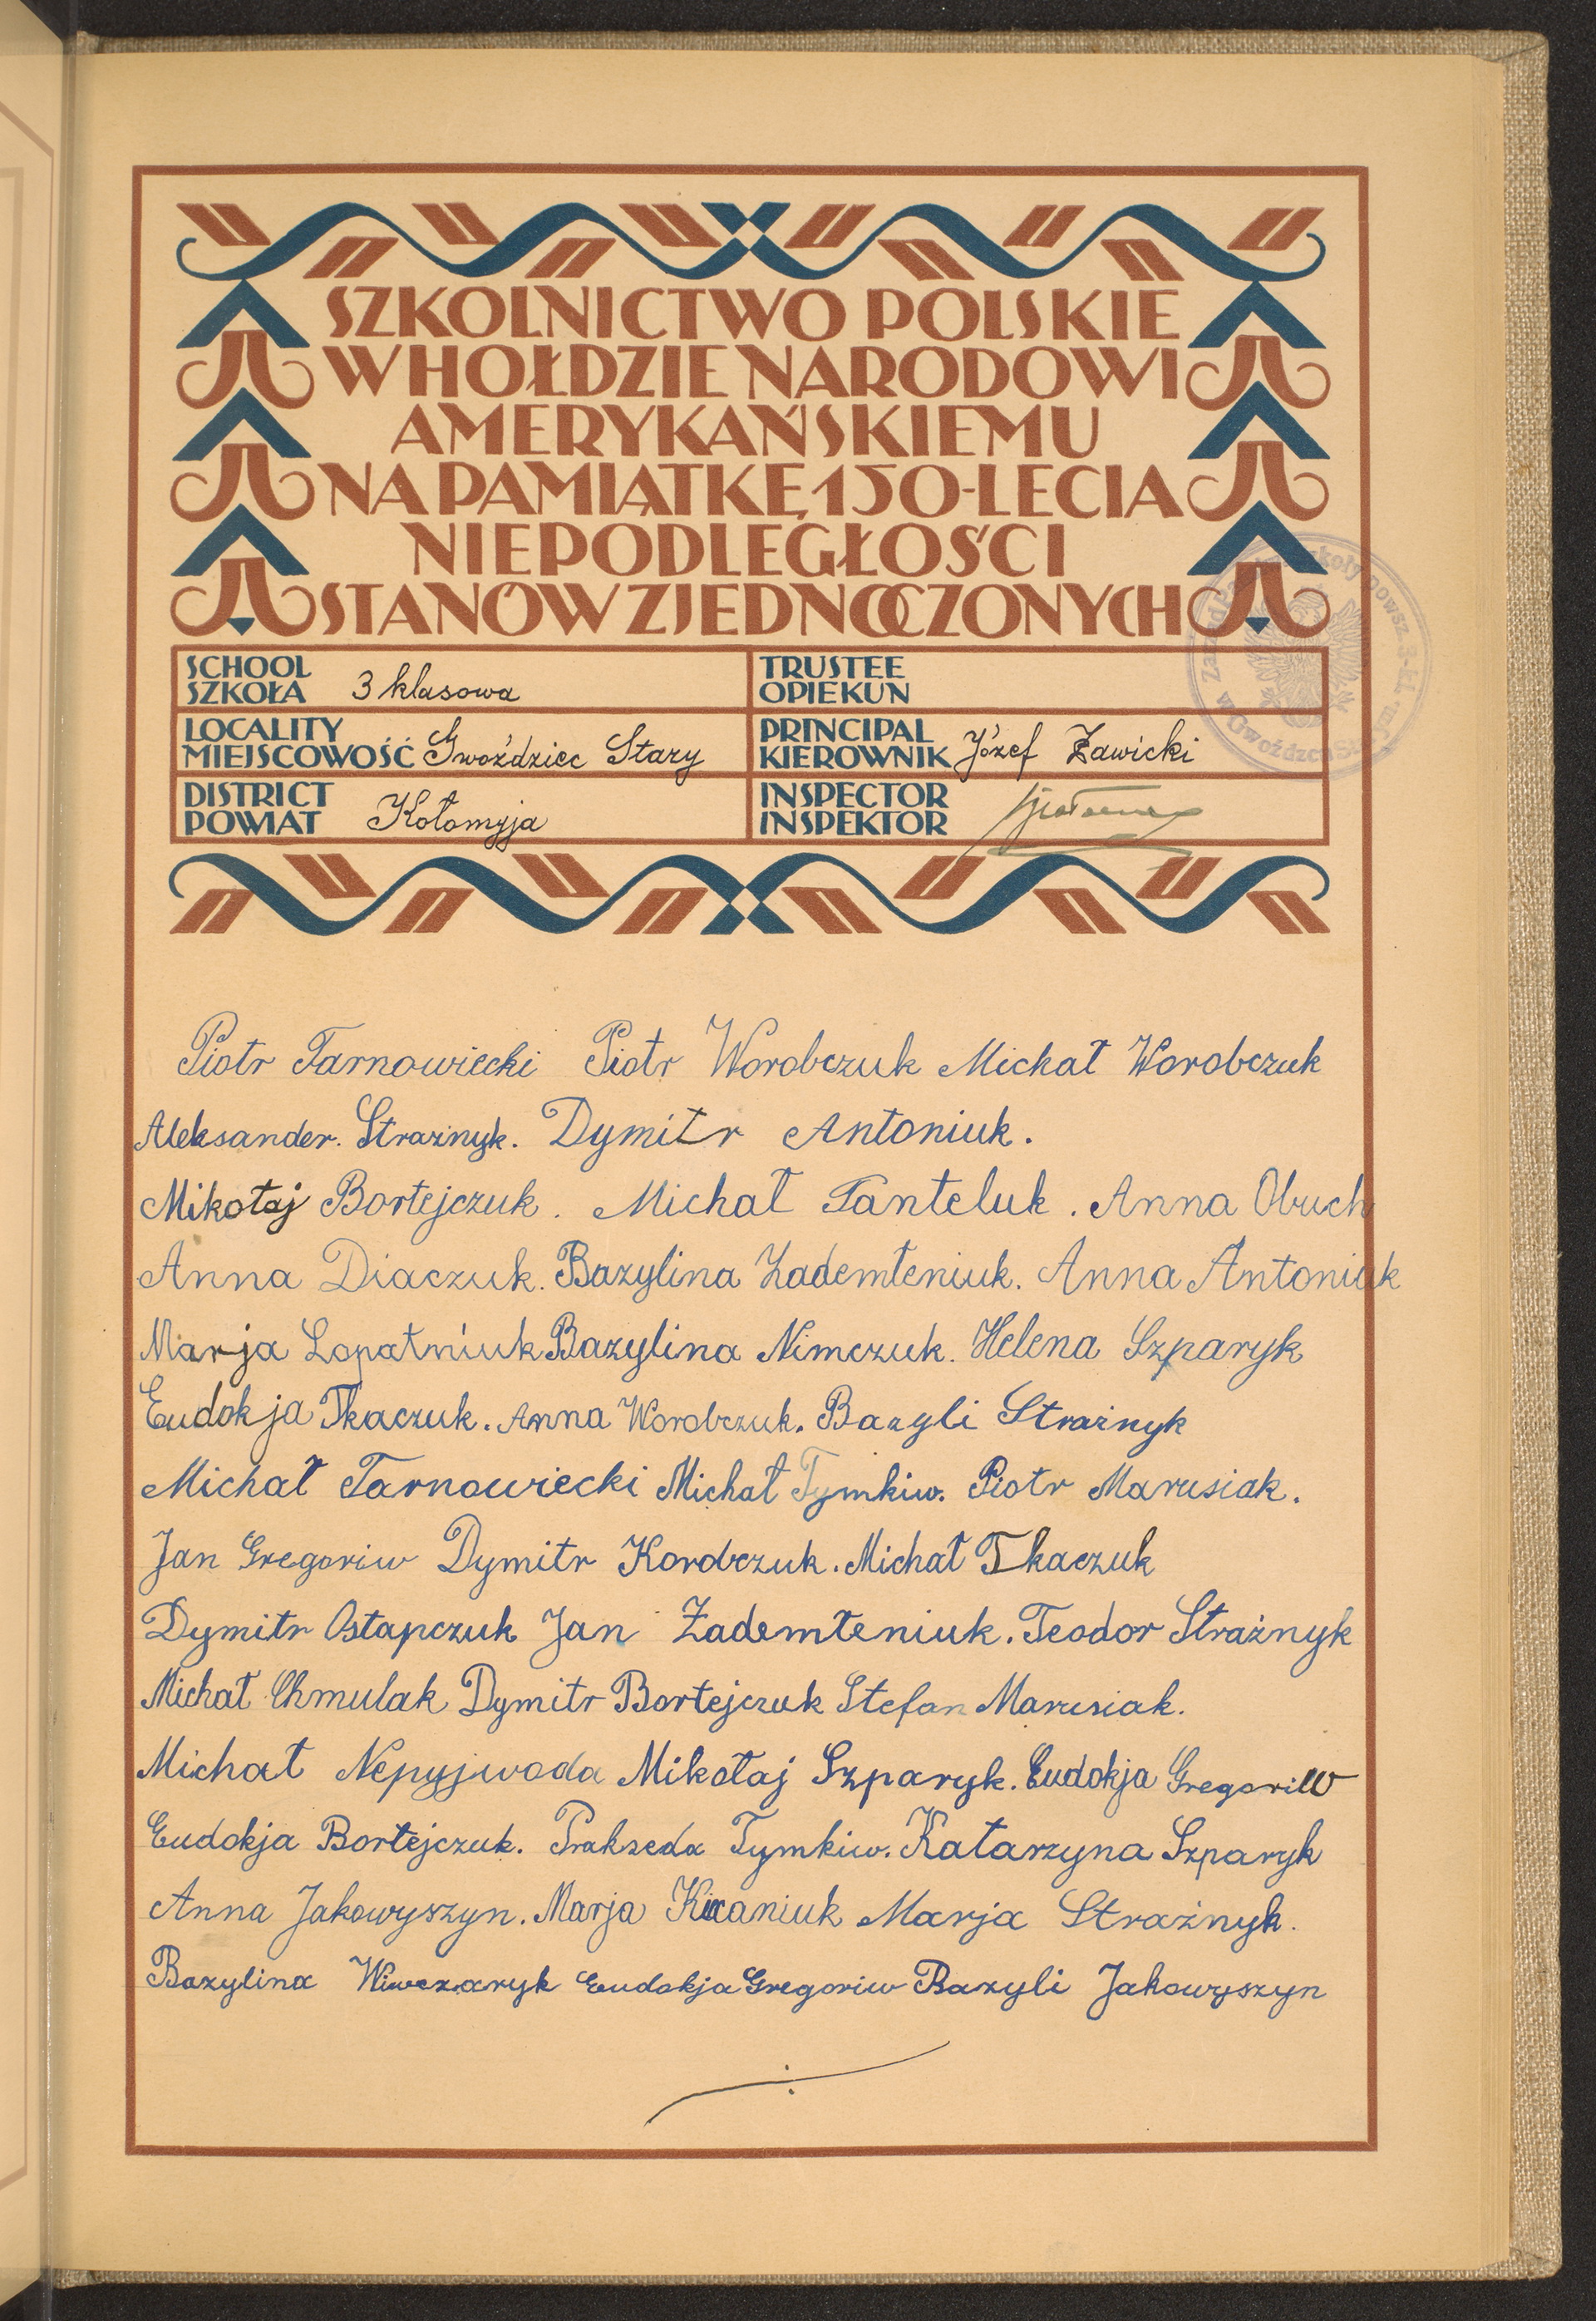 SZKOLNICTWO POLSKIE
W HOŁDZIE NARODOWI
AMERYKAŃSKIEMU
NA PAMIĄTKĘ 150-LECIA
NIEPODLEGŁOŚCI
STANÓW ZJEDNOCZONYCH
SCHOOL
SZKOŁA 3 klasowa
TRUSTEE
OPIEKUN
LOCALITY
MIEJSCOWOŚĆ Gwoździec Stary
PRINCIPAL
KIEROWNIK Józef Zawicki
DISTRICT
POWIAT Kołomyja
INSPECTOR
INSPEKTOR
Piotr Tarnowiecki Piotr Worobczuk Michał Worobczuk
Aleksander. Strażnyk. Dymitr Antoniuk.
Mikołaj Bortejczuk. Michał Tanteluk. Anna Obuch
Anna Diaczuk. Bazylina Zademłeniuk. Anna Antoniuk
Marja Lopatniuk Bazylina Nimczuk. Helena Szparyk
Eudokja Tkaczuk. Anna Worobczuk. Bazyli Strażnyk
Michał Tarnowiecki Michał Tymkiw. Piotr Marusiak.
Jan Gregoriw Dymitr Korobczuk. Michał Tkaczuk
Dymitr Ostapczuk Jan Zademłeniuk. Teodor Strażnyk
Michał Chmulak Dymitr Bortejczuk Stefan Marusiak.
Michał Nepyjwoda Mikołaj Szparyk. Eudokja Gregoriw
Eudokja Bortejczuk. Prakseda Tymkiw. Katarzyna Szparyk
Anna Jakowyszyn. Marja Marja Strażnyk.
Bazylina Wiwczaryk Eudokja Gregoriw Bazyli Jakowyszyn